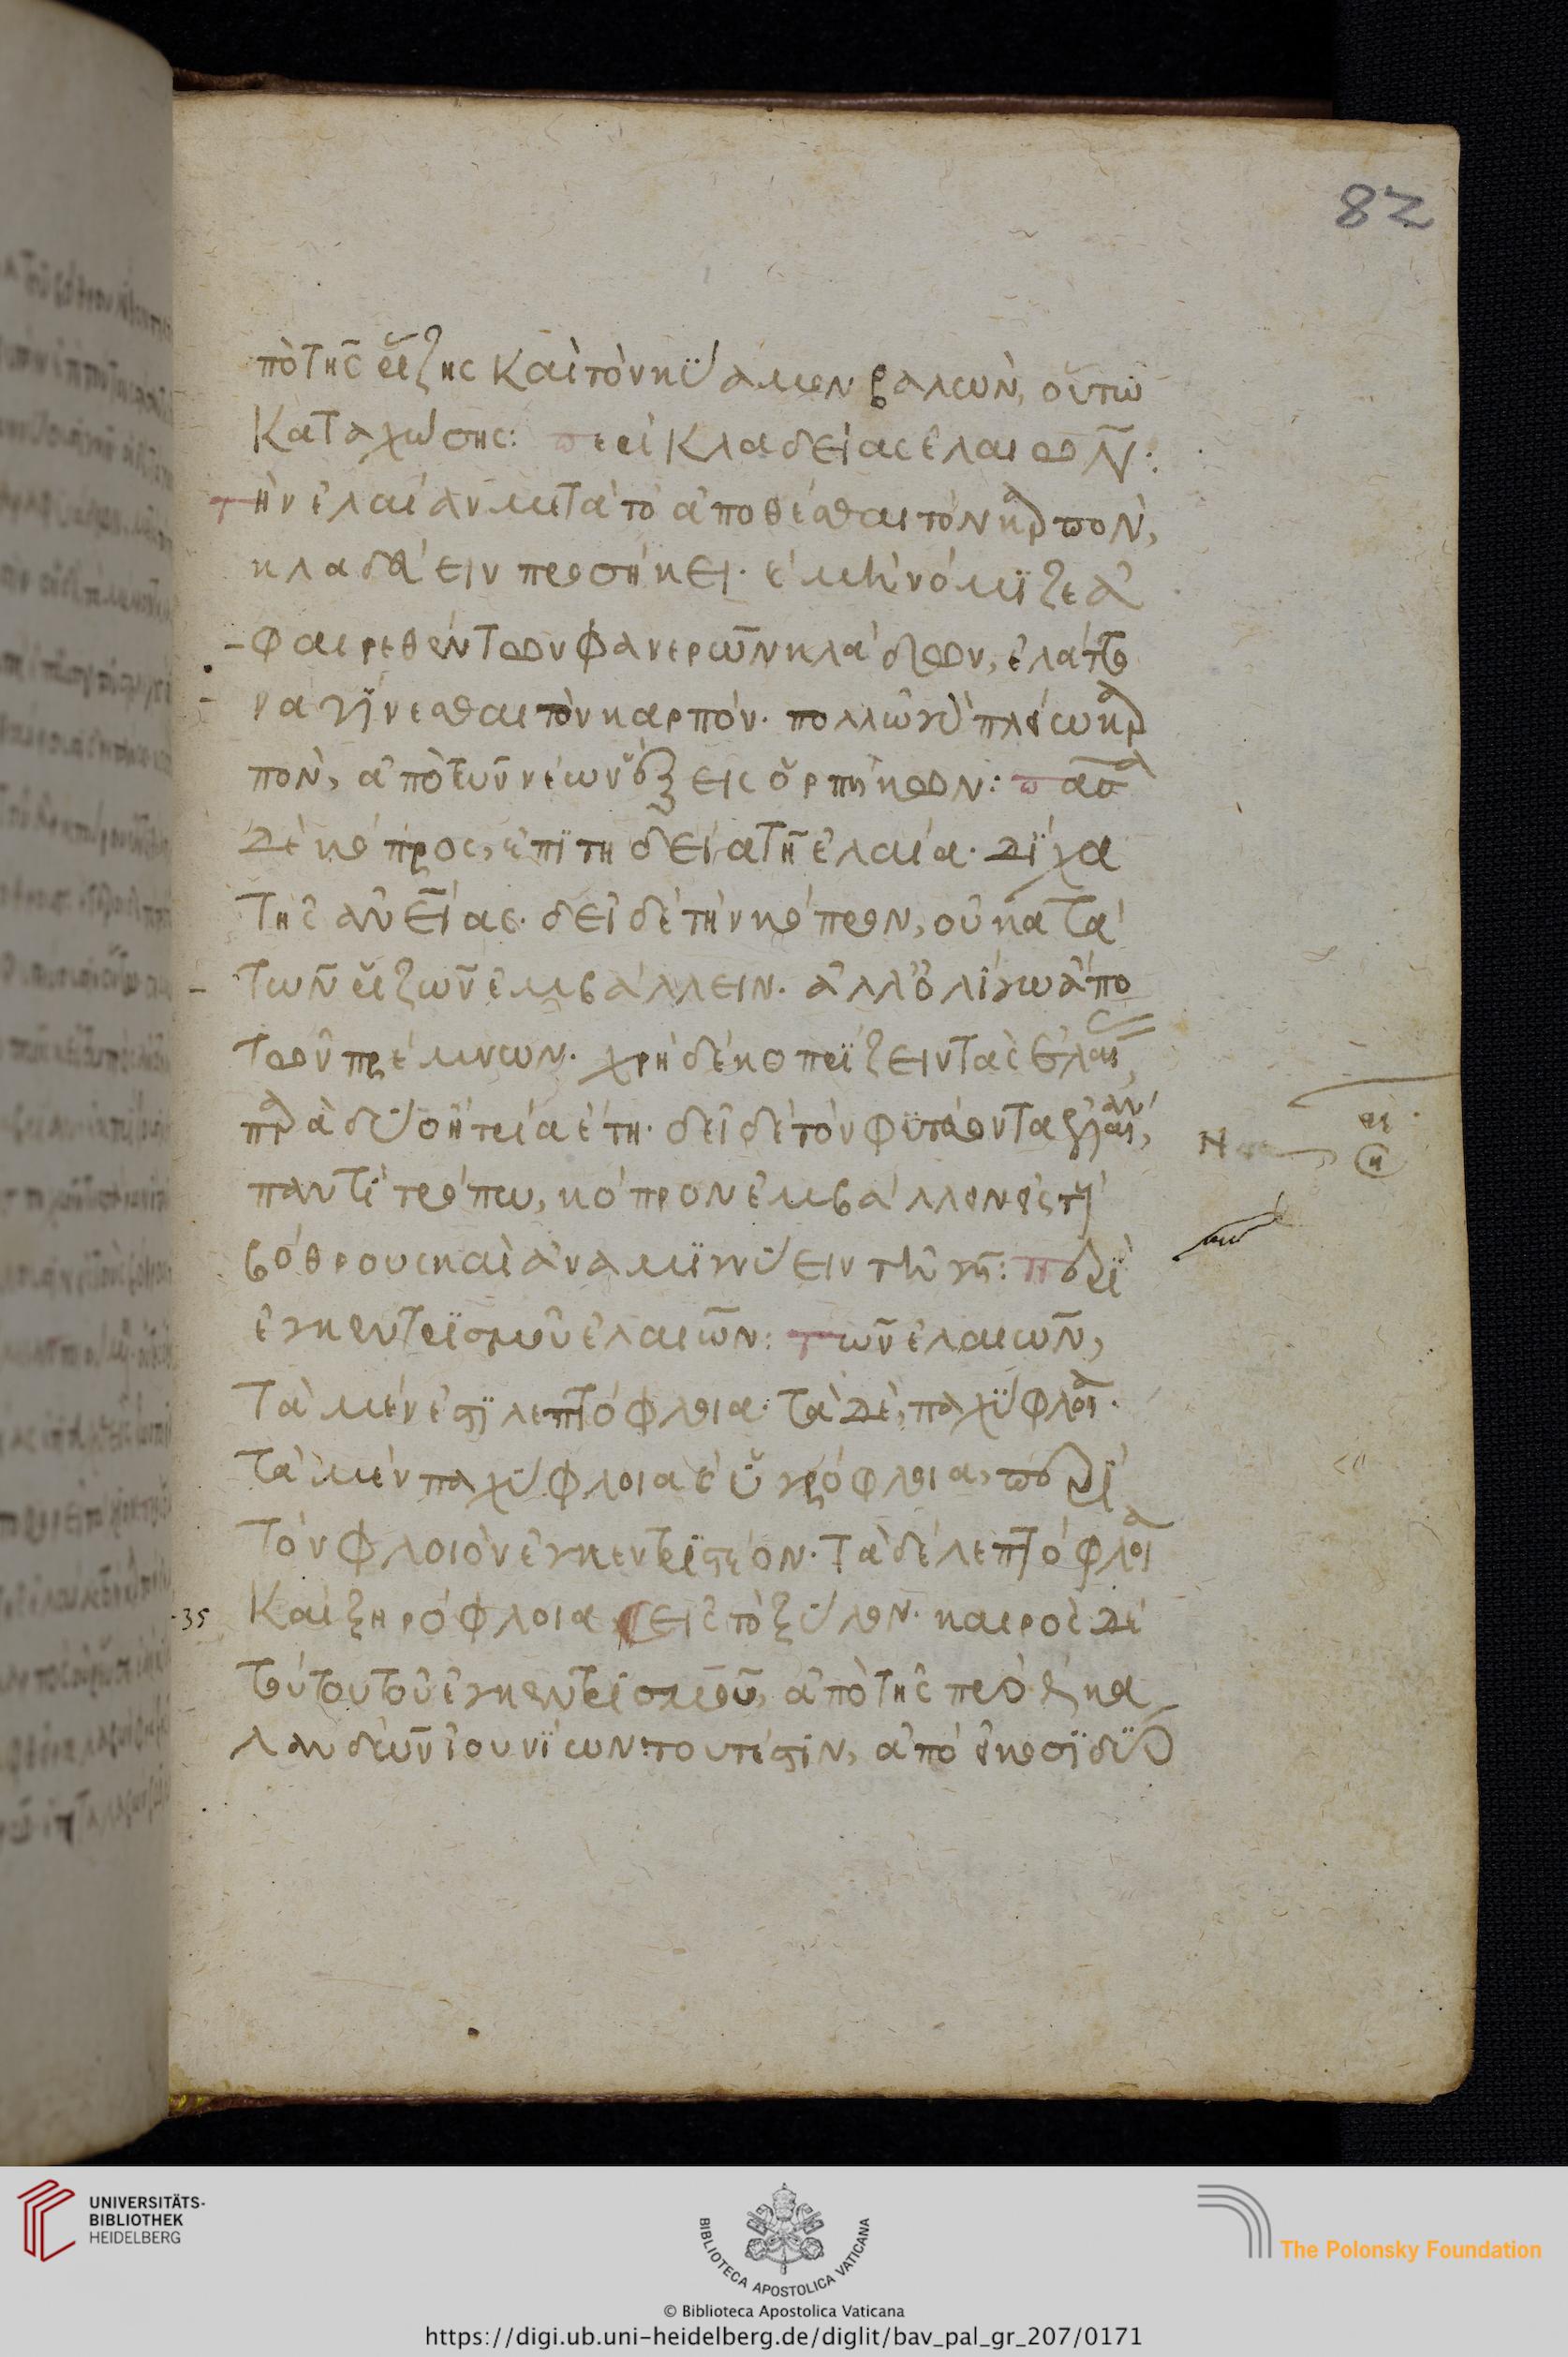 82
πὸ τῆς ῥίζης καὶ τὸν κύαμον βαλὼν, οὕτω
καταχώσης: περὶ κλαδείας ἐλαιῶν:
τὴν ἐλαίαν μετὰ τὸ ἀποθέσθαι τὸν καρπὸν,
κλαδεύειν προσήκει. ἐ μὴ νόμϊζε ἀ
φαιρεθέντων φανερῶν κλάδων, ἐλάττο
να γίνεσθαι τὸν καρπόν. πολλῶ γὰρ πλέω καρ
πὸν, ἀπὸ τῶν νέων ἕξεις ὁρπήκων: πᾶσα
δὲ κόπρος, ἐπϊτηδεία τῆ ἐλαία. δΐχα
τῆς ἀνείας. δεῖ δὲ τὴν κόπρον, οὐ κατὰ
τῶν ῥιζῶν ἐμβάλλειν. ἀλλ' ὀλίγω ἄπο
τῶν πρέμνων. χρὴ δὲ κοπρΐζειν τὰς ἐλαίας
παρὰ δύο ἢ τρία ἔτη. δεῖ δὲ τὸν φυτεύοντα ἐλαίαν,
παντὶ τρόπω, κόπρον ἐμβάλλειν εἰς τοὺς
βόθρους καὶ ἀναμϊγνύειν τῆ γῆ: περὶ
ἐγκεντρισμοῦ ἐλαιῶν: τῶν ἐλαιῶν,
τὰ μέν ἐστι λεπτόφλοια. τὰ δὲ, παχύφλοια.
τὰ μὲν παχύφλοια ἐ ὑγρόφλοια, περὶ
τὸν φλοιὸν ἐγκεντριστέον. τὰ δὲ λεπτόφλοια
καὶ ξηρόφλοια εἰς τὸ ξύλον. καιρὸς δὲ
τούτου τοῦ ἐγκεντρισμοῦ, ἀπὸ τῆς πρὸ ἕνδεκα
λανδῶν ϊουνΐων: τουτέστιν, ἀπὸ εἰκοσϊδύο
35
UNIVERSITÄTS-
BIBLIOTHEK
HEIDELBERG
BIBLIOTECA APOSTOLICA VATICANA
The Polonsky Foundation
© Biblioteca Apostolica Vaticana
https://digi.ub.uni-heidelberg.de/diglit/bav_pal_gr_207/0171